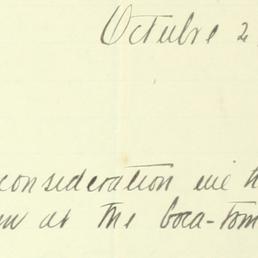 Octubre 2
consideration we h
at the boca-tom